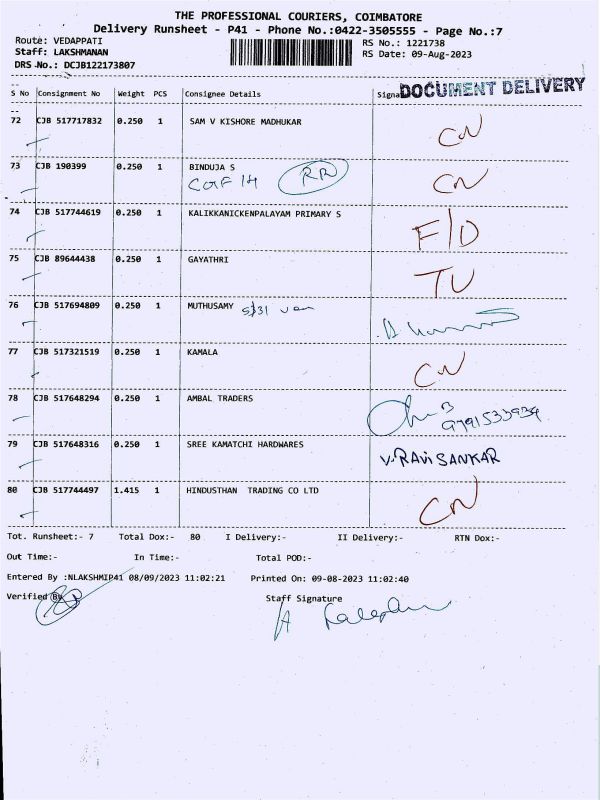 THE PROFESSIONAL COURIERS, COIMBATORE
Delivery Runsheet - P41 - Phone No.:0422-3505555 - Page No.:7
Route: VEDAPPATI RS No.: 1221738
Staff: LAKSHMANAN RS Date: 09-Aug-2023
DRS No.: DCJB122173807
DOCUMENT DELIVERY
S No Consignment No Weight PCS Consignee Details Signa
72 CJB 517717832 0.250 1 SAM V KISHORE MADHUKAR CN
73 CJB 190399 0.250 1 BINDUJA S CN
RR
74 CJB 517744619 0.250 1 KALIKKANICKENPALAYAM PRIMARY S F/D
75 CJB 89644438 0.250 1 GAYATHRI TU
76 CJB 517694809 0.250 1 MUTHUSAMY
77 CJB 517321519 0.250 1 KAMALA CN
78 CJB 517648294 0.250 1 AMBAL TRADERS
79 CJB 517648316 0.250 1 SREE KAMATCHI HARDWARES V.RAVi SANKAR
80 CJB 517744497 1.415 1 HINDUSTHAN TRADING CO LTD CN
Tot. Runsheet:- 7 Total Dox:- 80 I Delivery:- II Delivery:- RTN Dox:-
Out Time:- In Time:- Total POD:-
Entered By :NLAKSHMIP41 08/09/2023 11:02:21 Printed On: 09-08-2023 11:02:40
Verified By Staff Signature